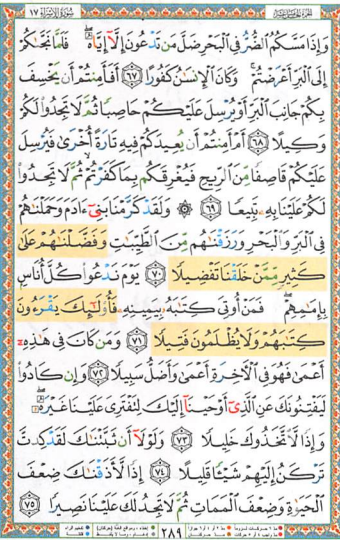 الجزء الخامس عشر سورة الإسراء ١٧
وَإِذَا مَسَّكُمُ ٱلضُّرُّ فِي ٱلۡبَحۡرِ ضَلَّ مَن تَدۡعُونَ إِلَّآ إِيَّاهُۖ فَلَمَّا نَجَّىٰكُمۡ
إِلَى ٱلۡبَرِّ أَعۡرَضۡتُمۡۚ وَكَانَ ٱلۡإِنسَٰنُ كَفُورًا ٦٧ أَفَأَمِنتُمۡ أَن يَخۡسِفَ
بِكُمۡ جَانِبَ ٱلۡبَرِّ أَوۡ يُرۡسِلَ عَلَيۡكُمۡ حَاصِبٗا ثُمَّ لَا تَجِدُواْ لَكُمۡ
وَكِيلًا ٦٨ أَمۡ أَمِنتُمۡ أَن يُعِيدَكُمۡ فِيهِ تَارَةً أُخۡرَىٰ فَيُرۡسِلَ
عَلَيۡكُمۡ قَاصِفٗا مِّنَ ٱلرِّيحِ فَيُغۡرِقَكُم بِمَا كَفَرۡتُمۡ ثُمَّ لَا تَجِدُواْ
لَكُمۡ عَلَيۡنَا بِهِۦ تَبِيعٗا ٦٩ ۞ وَلَقَدۡ كَرَّمۡنَا بَنِيٓ ءَادَمَ وَحَمَلۡنَٰهُمۡ
فِي ٱلۡبَرِّ وَٱلۡبَحۡرِ وَرَزَقۡنَٰهُم مِّنَ ٱلطَّيِّبَٰتِ وَفَضَّلۡنَٰهُمۡ عَلَىٰ
كَثِيرٖ مِّمَّنۡ خَلَقۡنَا تَفۡضِيلٗا ٧٠ يَوۡمَ نَدۡعُواْ كُلَّ أُنَاسِۭ
بِإِمَٰمِهِمۡۖ فَمَنۡ أُوتِيَ كِتَٰبَهُۥ بِيَمِينِهِۦ فَأُوْلَٰٓئِكَ يَقۡرَءُونَ
كِتَٰبَهُمۡ وَلَا يُظۡلَمُونَ فَتِيلٗا ٧١ وَمَن كَانَ فِي هَٰذِهِۦٓ
أَعۡمَىٰ فَهُوَ فِي ٱلۡأٓخِرَةِ أَعۡمَىٰ وَأَضَلُّ سَبِيلٗا ٧٢ وَإِن كَادُواْ
لَيَفۡتِنُونَكَ عَنِ ٱلَّذِيٓ أَوۡحَيۡنَآ إِلَيۡكَ لِتَفۡتَرِيَ عَلَيۡنَا غَيۡرَهُۥۖ
وَإِذٗا لَّٱتَّخَذُوكَ خَلِيلٗا ٧٣ وَلَوۡلَآ أَن ثَبَّتۡنَٰكَ لَقَدۡ كِدتَّ
تَرۡكَنُ إِلَيۡهِمۡ شَيۡـٔٗا قَلِيلًا ٧٤ إِذٗا لَّأَذَقۡنَٰكَ ضِعۡفَ
ٱلۡحَيَوٰةِ وَضِعۡفَ ٱلۡمَمَاتِ ثُمَّ لَا تَجِدُ لَكَ عَلَيۡنَا نَصِيرٗا ٧٥
٢٨٩